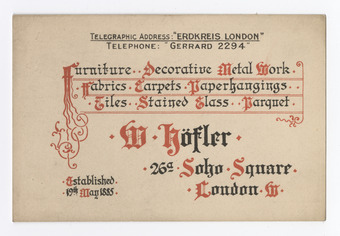 TELEGRAPHIC ADDRESS: "ERDKREIS LONDON"
TELEPHONE: "GERRARD 2294"
Furniture · Decorative Metal Work ·
Fabrics · Carpets · Paperhangings ·
· Tiles · Stained Glass · Parquet ·
· W · Höfler ·
· 26a · Soho · Square ·
· London · W ·
Established ·
· 19th May 1885 ·